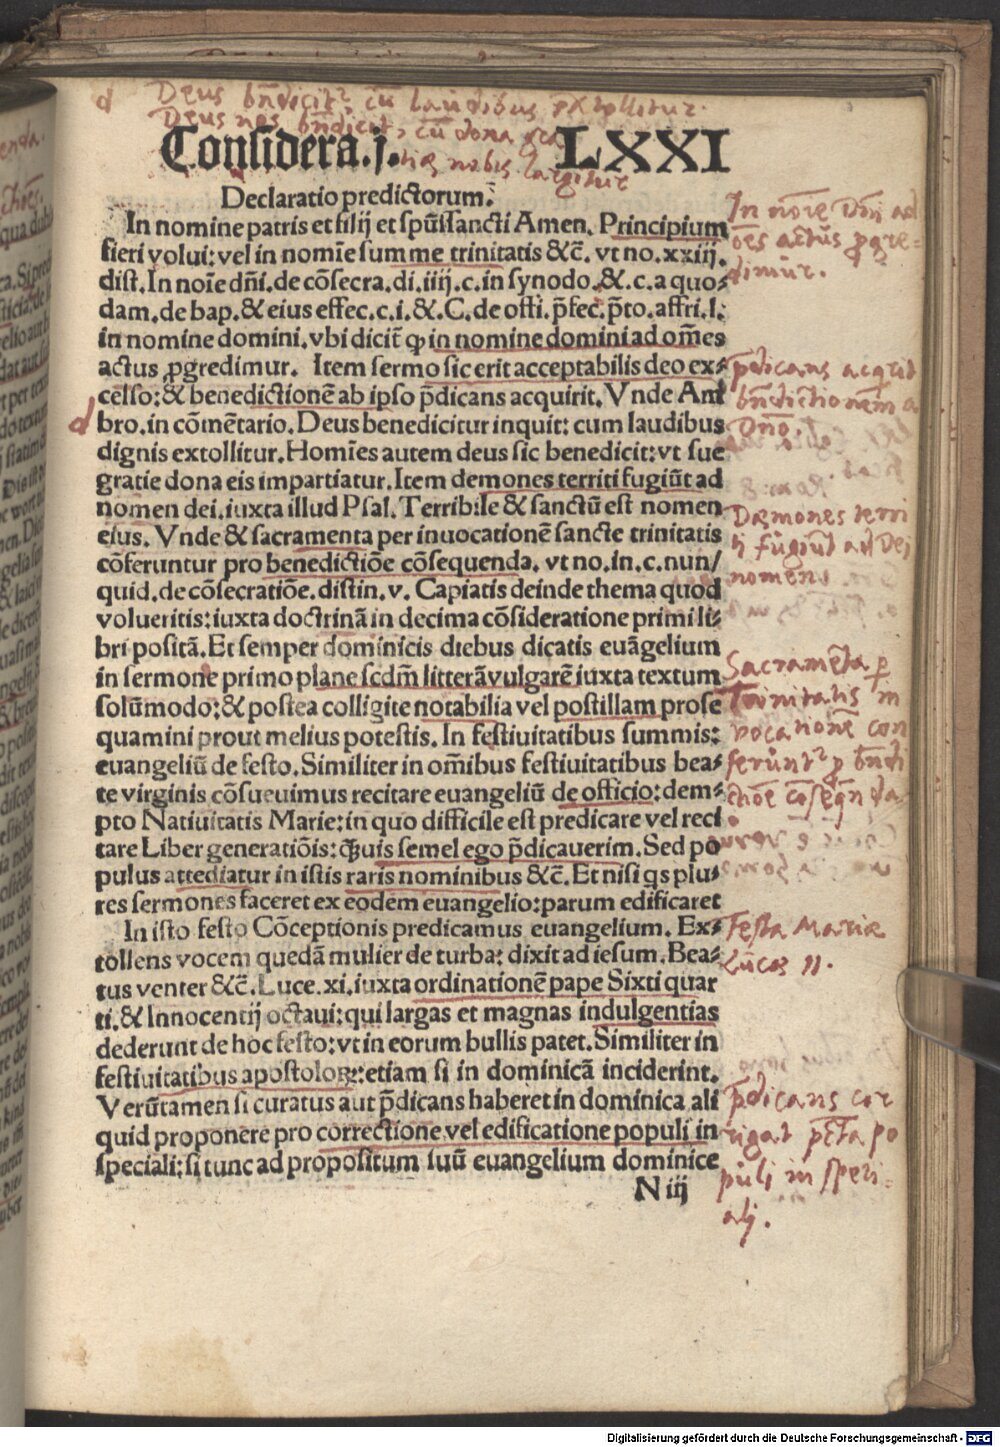 d Deus bn̄dicit᷒, cū laudibus extollitur.
Deus nos bn̄dicit, cū dona gra
tiæ nobis largitur
Considera.j. LXXI
Declaratio predictorum.
In nomine patris et filij et spūssancti Amen. Principium
fieri volui: vel in nomīe summe trinitatis &c̄. vt no. xxiij.
dist. In noīe dn̄i. de cōsecra. di. iiij. c. in synodo. & c. a quo⸗
dam. de bap. & eius effec. c. i. & C. de offi. p̄fec. p̄to. affri. l.
in nomine domini. vbi dicit̄ ꝙ in nomine domini ad om̄es
actus ꝓgredimur. Item sermo sic erit acceptabilis deo ex⸗
celso: & benedictionē ab ipso p̄dicans acquirit. Vnde Am
bro. in cōmētario. Deus benedicitur inquit: cum laudibus
dignis extollitur. Homīes autem deus sic benedicit: vt sue
gratie dona eis impartiatur. Item demones territi fugiūt ad
nomen dei. iuxta illud Psal. Terribile & sanctū est nomen
eius. Vnde & sacramenta per inuocationē sancte trinitatis
cōferuntur pro benedictiōe cōsequenda. vt no. in. c. nun/
quid. de cōsecratiōe. distin. v. Capiatis deinde thema quod
volueritis: iuxta doctrinā in decima cōsideratione primi li⸗
bri positā. Et semper dominicis diebus dicatis euāgelium
in sermone primo plane scdm̄ litterā vulgarē iuxta textum
solūmodo: & postea colligite notabilia vel postillam prose
quamini prout melius potestis. In festiuitatibus summis:
euangeliū de festo. Similiter in om̄ibus festiuitatibus bea⸗
te virginis cōsueuimus recitare euangeliū de officio: dem⸗
pto Natiuitatis Marie: in quo difficile est predicare vel reci
tare Liber generatiōis: ꝙuis semel ego p̄dicauerim. Sed po
pulus attediatur in istis raris nominibus &c̄. Et nisi qs plu⸗
res sermones faceret ex eodem euangelio: parum edificaret
In isto festo Cōceptionis predicamus euangelium. Ex⸗
tollens vocem quedā mulier de turba: dixit ad iesum. Bea⸗
tus venter &c̄. Luce. xi. iuxta ordinationē pape Sixti quar
ti. & Innocentij octaui: qui largas et magnas indulgentias
dederunt de hoc festo: vt in eorum bullis patet. Similiter in
festiuitatibus apostoloꝝ: etiam si in dominicā inciderint.
Verūtamen si curatus aut p̄dicans haberet in dominica ali
quid proponere pro correctione vel edificatione populi in
speciali: si tunc ad propositum suū euangelium dominice
N iij
In noīe Dn̄i ad
oēs actus ꝓgre⸗
dimur.
p̄dicans acquirit
bn̄dictionem a
Dn̄o.
d
Dæmones terri
ti fugiūt ad Dei
nomen
Sacramēta ꝑ
Trinitatis in
vocationē con
ferūnt᷒ ꝓ bn̄di
ctiōe cōseqn̄da
Festa Mariæ
Lucæ 11.
p̄dicans cor
rigat pctā po
puli in speci⸗
ali.
Digitalisierung gefördert durch die Deutsche Forschungsgemeinschaft - DFG